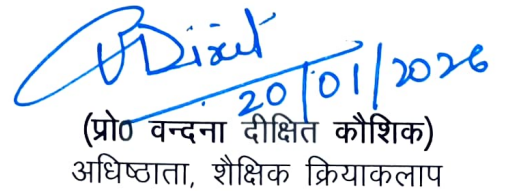 VDixit
20/01/2026
(प्रो0 वन्दना दीक्षित कौशिक)
अधिष्ठाता, शैक्षिक क्रियाकलाप